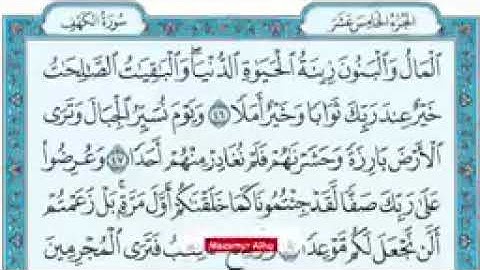 الجزء الخامس عشر
سورة الكهف
ٱلْمَالُ وَٱلْبَنُونَ زِينَةُ ٱلْحَيَوٰةِ ٱلدُّنْيَاۖ وَٱلْبَٰقِيَٰتُ ٱلصَّٰلِحَٰتُ
خَيْرٌ عِندَ رَبِّكَ ثَوَابًا وَخَيْرٌ أَمَلًا ٤٦ وَيَوْمَ نُسَيِّرُ ٱلْجِبَالَ وَتَرَى
ٱلْأَرْضَ بَارِزَةً وَحَشَرْنَٰهُمْ فَلَمْ نُغَادِرْ مِنْهُمْ أَحَدًا ٤٧ وَعُرِضُوا۟
عَلَىٰ رَبِّكَ صَفًّا لَّقَدْ جِئْتُمُونَا كَمَا خَلَقْنَٰكُمْ أَوَّلَ مَرَّةٍۭۚ بَلْ زَعَمْتُمْ
أَلَّن نَّجْعَلَ لَكُم مَّوْعِدًا فَتَرَى ٱلْمُجْرِمِينَ